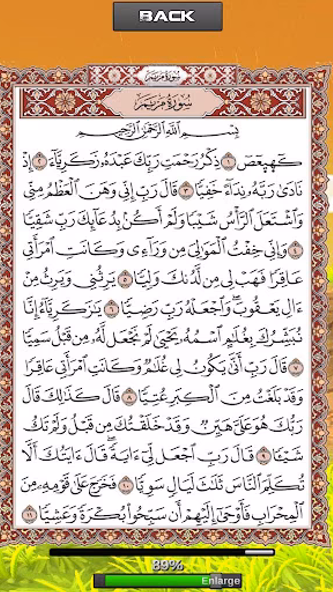 BACK
سُورَةُ مَرْيَمَ
سُورَةُ مَرْيَمَ
بِسْمِ ٱللَّهِ ٱلرَّحْمَٰنِ ٱلرَّحِيمِ
كٓهيعٓصٓ ١ ذِكْرُ رَحْمَتِ رَبِّكَ عَبْدَهُۥ زَكَرِيَّآ ٢ إِذْ
نَادَىٰ رَبَّهُۥ نِدَآءً خَفِيًّا ٣ قَالَ رَبِّ إِنِّى وَهَنَ ٱلْعَظْمُ مِنِّى
وَٱشْتَعَلَ ٱلرَّأْسُ شَيْبًا وَلَمْ أَكُنۢ بِدُعَآئِكَ رَبِّ شَقِيًّا
٤ وَإِنِّى خِفْتُ ٱلْمَوَٰلِىَ مِن وَرَآءِى وَكَانَتِ ٱمْرَأَتِى
عَاقِرًا فَهَبْ لِى مِن لَّدُنكَ وَلِيًّا ٥ يَرِثُنِى وَيَرِثُ مِنْ
ءَالِ يَعْقُوبَ ۖ وَٱجْعَلْهُ رَبِّ رَضِيًّا ٦ يَٰزَكَرِيَّآ إِنَّا
نُبَشِّرُكَ بِغُلَٰمٍ ٱسْمُهُۥ يَحْيَىٰ لَمْ نَجْعَل لَّهُۥ مِن قَبْلُ سَمِيًّا
٧ قَالَ رَبِّ أَنَّىٰ يَكُونُ لِى غُلَٰمٌ وَكَانَتِ ٱمْرَأَتِى عَاقِرًا
وَقَدْ بَلَغْتُ مِنَ ٱلْكِبَرِ عِتِيًّا ٨ قَالَ كَذَٰلِكَ قَالَ
رَبُّكَ هُوَ عَلَىَّ هَيِّنٌ وَقَدْ خَلَقْتُكَ مِن قَبْلُ وَلَمْ تَكُ
شَيْـًٔا ٩ قَالَ رَبِّ ٱجْعَل لِّىٓ ءَايَةً ۚ قَالَ ءَايَتُكَ أَلَّا
تُكَلِّمَ ٱلنَّاسَ ثَلَٰثَ لَيَالٍ سَوِيًّا ١٠ فَخَرَجَ عَلَىٰ قَوْمِهِۦ مِنَ
ٱلْمِحْرَابِ فَأَوْحَىٰٓ إِلَيْهِمْ أَن سَبِّحُوا۟ بُكْرَةً وَعَشِيًّا ١١
89%
Enlarge